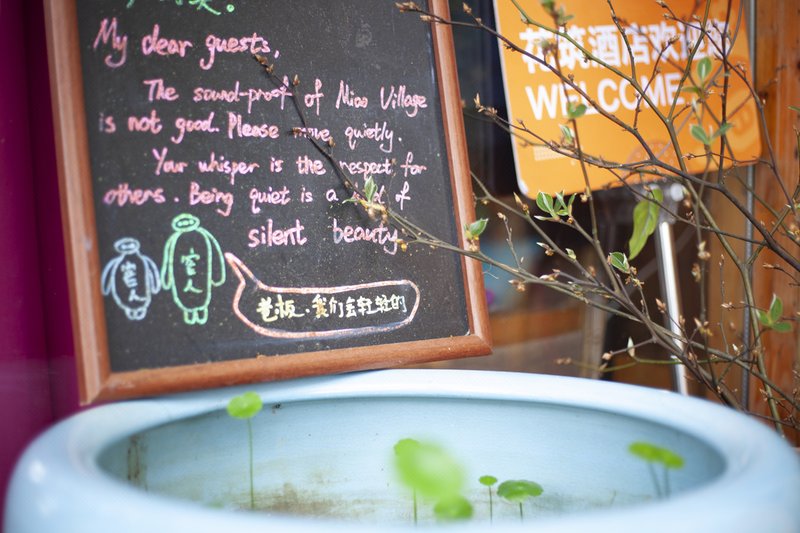 My dear guests,
The sound-proof of Miao Village
is not good. Please move quietly.
Your whisper is the respect for
others. Being quiet is a kind of
silent beauty
老板,我们会轻轻的
花筑酒店欢迎您
WELCOME